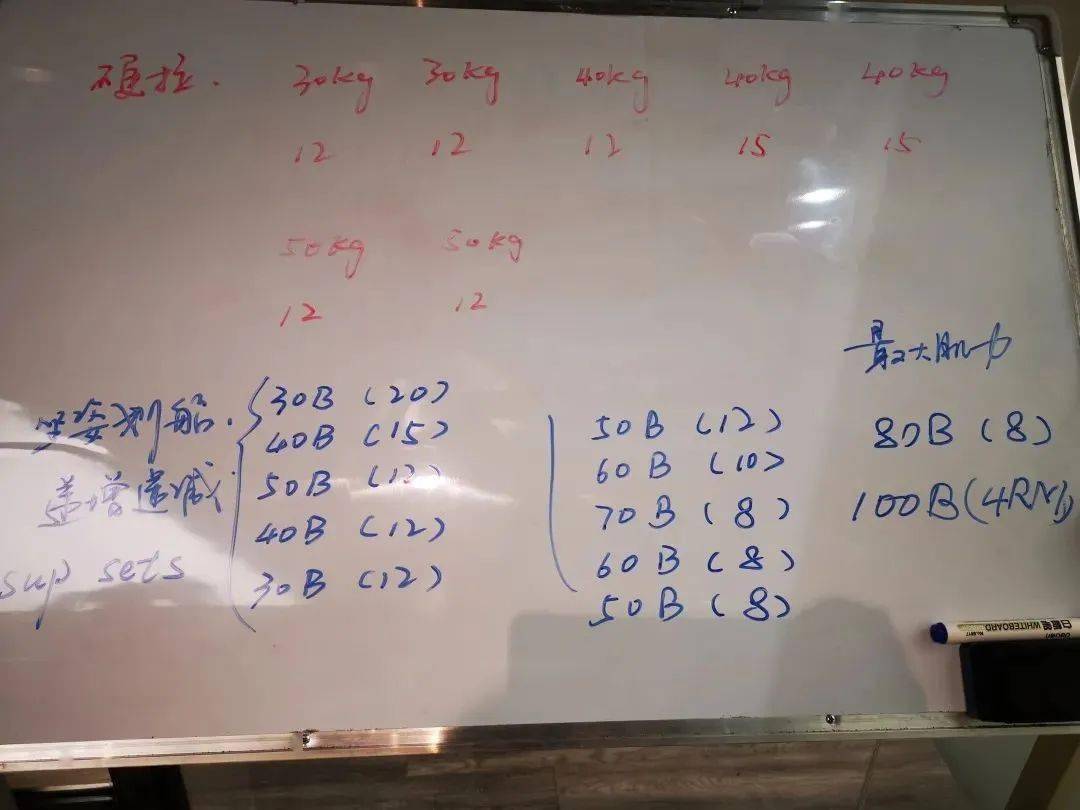 硬拉. 30kg 30kg 40kg 40kg 40kg
12 12 12 15 15
50kg 50kg
12 12
最大肌力
坐姿划船.
递增递减
sup sets
30B (20)
40B (15)
50B (12)
40B (12)
30B (12)
50B (12)
60B (10)
70B (8)
60B (8)
50B (8)
80B (8)
100B (4RM)
WHITEBOARD